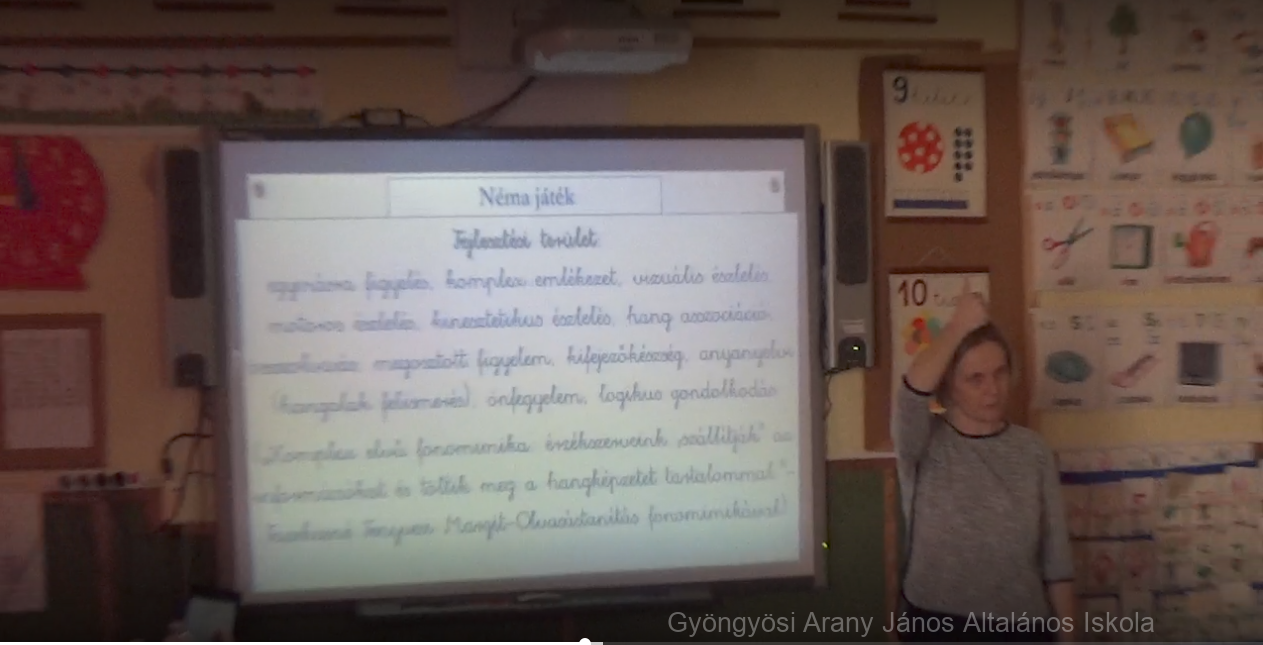 Néma játék
Fejlesztési terület
egymásra figyelés, komplex emlékezet, vizuális észlelés,
motoros észlelés, kinesztetikus észlelés, hang asszociáció-
megosztott figyelem, kifejezőkészség, anyanyelvi
(hangalak felismerés), önfegyelem, logikus gondolkodás
"Komplex elvű fonomimika: érzékszerveink „szállítják" az
információkat és töltik meg a hangképzetet tartalommal."-
Fenyves Margit-Olvasástanítás fonomimikával)
9
10
Gyöngyösi Arany János Altalános Iskola